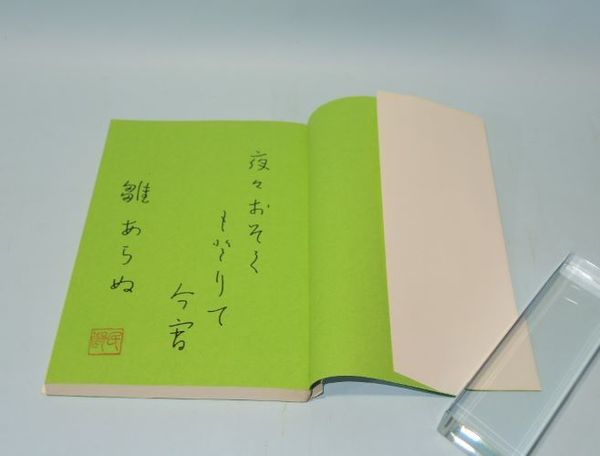 夜々おそく
もどりて
今宵
雛あらぬ
民郎